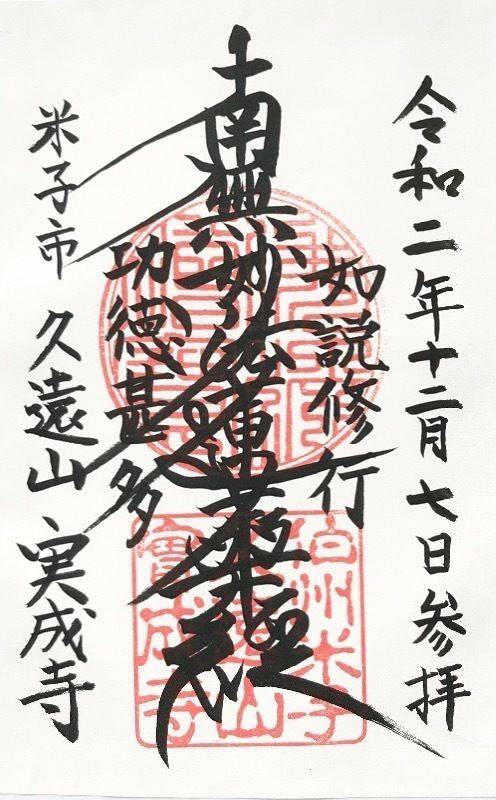 令和二年十二月七日参拝
如説修行
南無妙法蓮華経
功徳甚多
米子市 久遠山 実成寺
伯州米子
久遠山
實成寺